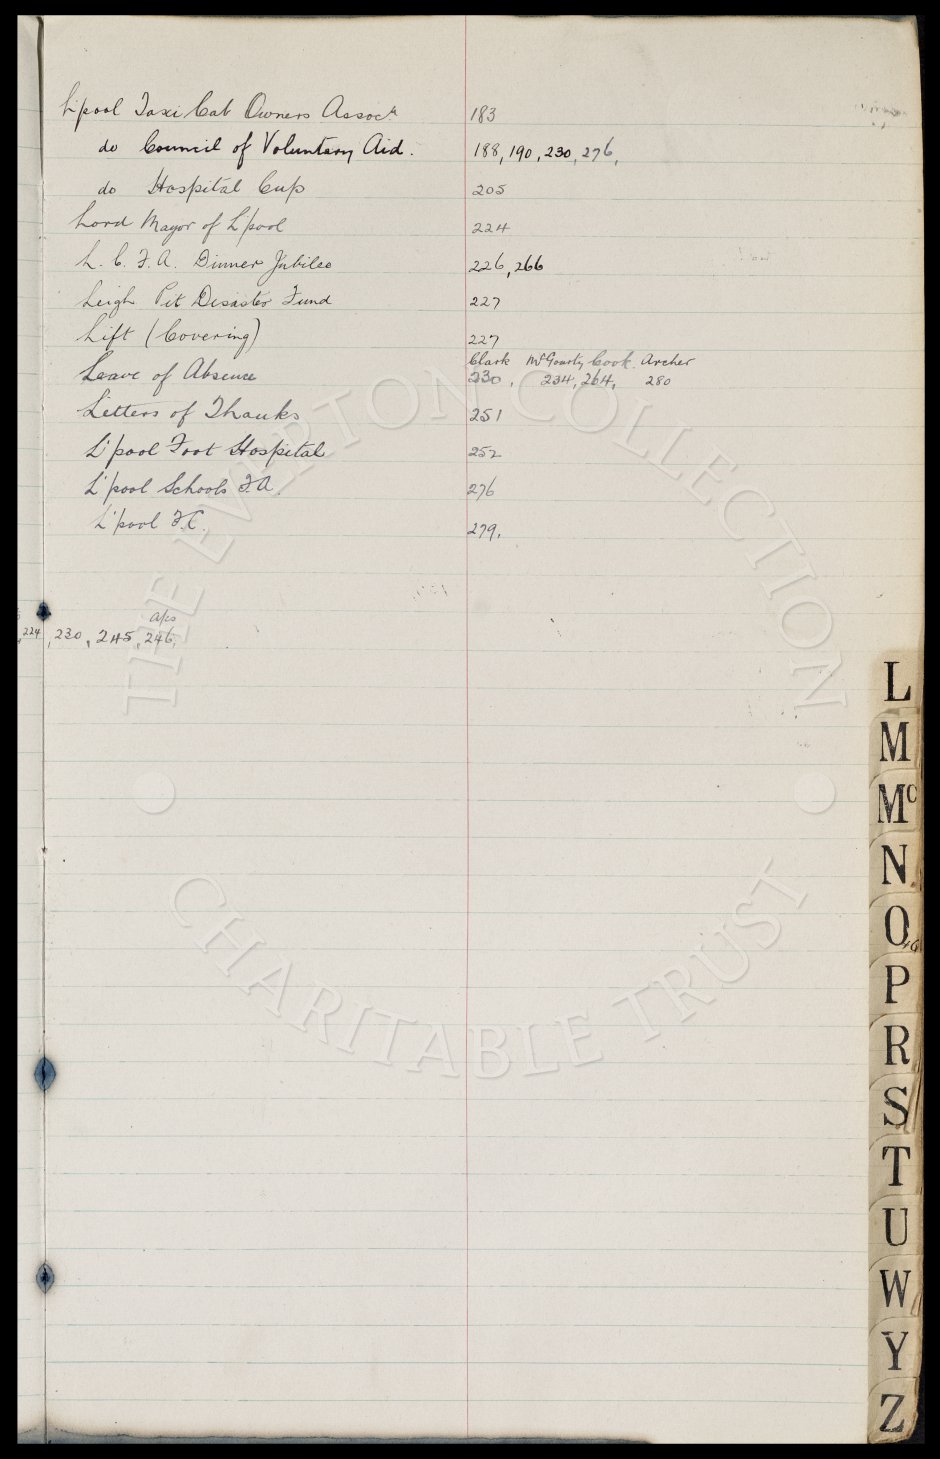 L'pool Taxi Cab Owners Assocn 183
do Council of Voluntary Aid. 188, 190, 230, 276,
do Hospital Cup 205
Lord Mayor of L'pool 224
L. C. F. A. Dinner Jubilee 226, 266
Leigh Pit Disaster Fund 227
Lift (Covering) 227
Clark McGourty Cook Archer
Leave of Absence 230, 234, 264, 280
Letters of Thanks 251
L'pool Foot Hospital 252
L'pool Schools F.A. 276
L'pool F.C. 279.
a/cs
224, 230, 245, 246,
L
M
Mc
N
O
P
R
S
T
U
W
Y
Z
THE EVERTON COLLECTION
CHARITABLE TRUST